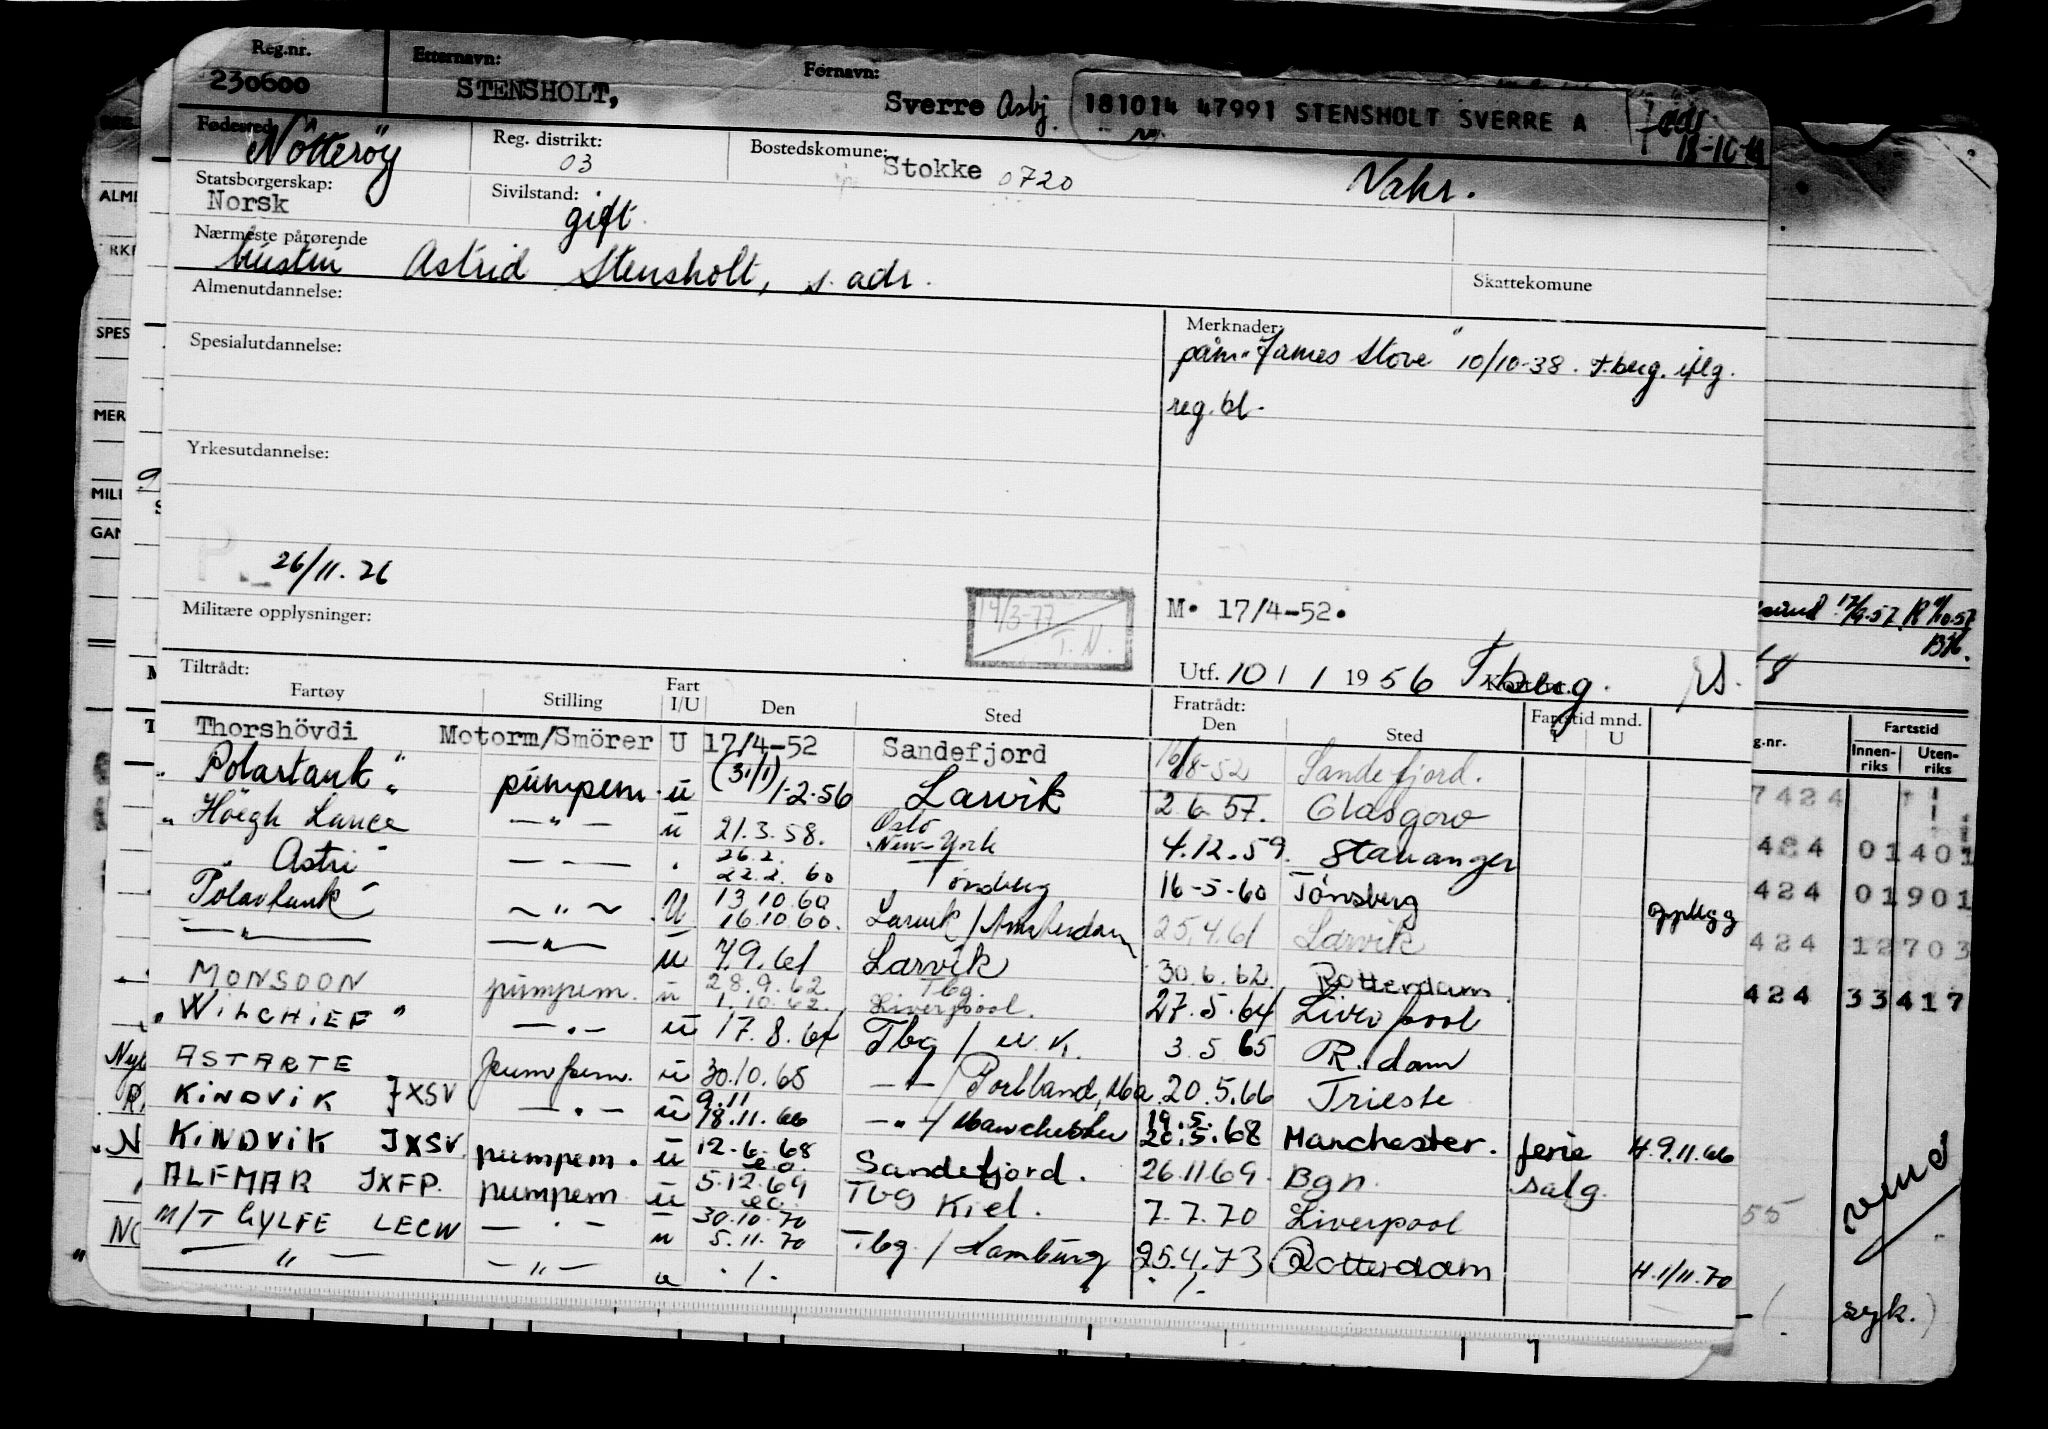 Reg.nr. Etternavn: Fornavn:
230600 STENSHOLT, Sverre Asbj. 181014 47991 STENSHOLT SVERRE A
Fødested Nötteröy Reg. distrikt: 03 Bostedskomune: Stokke 0720 Vahr.
Statsborgerskap: Norsk Sivilstand: gift
Nærmeste pårørende
hustru Astrid Stensholt, s. adr. Skattekomune
Almenutdannelse:
Merknader:
påm. "James Stove" 10/10-38. T.berg. iflg.
reg. bl.
Spesialutdannelse:
Yrkesutdannelse:
26/11.76
Militære opplysninger:
14/3-77
T.N.
M. 17/4-52.
Utf. 10 / 1 1956 T.berg.
Tiltrådt: Fratrådt:
Fartøy Stilling Fart I/U Den Sted Den Sted Fartstid mnd. I U
Thorshövdi Motorm/Smörer U 17/4-52 Sandefjord 16/8-52 Sandefjord.
"Polartank" pumpem. u (31/1) 1.2.56 Larvik 2.6.57. Glasgow
"Höegh Lance — " — u 21.3.58. Oslo New-York 4.12.59. Stavanger
" Astri " — " — 26.2. 22.2. 60 Tönsberg 16-5-60 Tönsberg opplegg
Polartank — " — U 13.10.60 16.10.60. Larvik / Amsterdam 25.4.61 Larvik
— " — — " — u 7.9.61 Larvik 30.6.62 Rotterdam.
MONSOON pumpem. u 28.9.62 1.10.62. Tbg Liverpool. 27.5.64 Liverpool
"WILCHIEF" — " — u 17.8.64 Tbg / U.K. 3.5.65 R.dam
ASTARTE pumpem. u 30.10.65 — " — / Portland, 20.5.66 Trieste
KINDVIK JXSV — " — u 9.11 18.11.66 — " — / Manchester 19.5. 20.5.68 Manchester. ferie H.9.11.66
KINDVIK JXSV. pumpem. u 12.6.68 Sandefjord. 26.11.69. Bgn. salg.
ALFMAR JXFP. pumpem u 5.12.69 Tbg Kiel. 7.7.70 Liverpool
M/T GYLFE LECW — " — u 30.10.70 5.11.70 Tbg / Hamburg 25.4.73 Rotterdam H.1/11.70
— " — — " — u ./. ./.
ALM
SPES
MER
MILI
GAN
17/9.57
Fartstid
g.nr. Innenriks Utenriks
7424
424 01401
424 01901
424 12703
424 33417
55
vend
syk.)